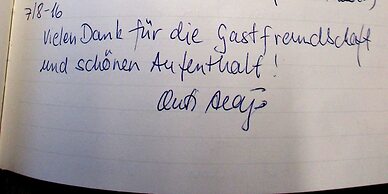 7/8-16
Vielen Dank für die Gastfreundschaft
und schönen Aufenthalt!